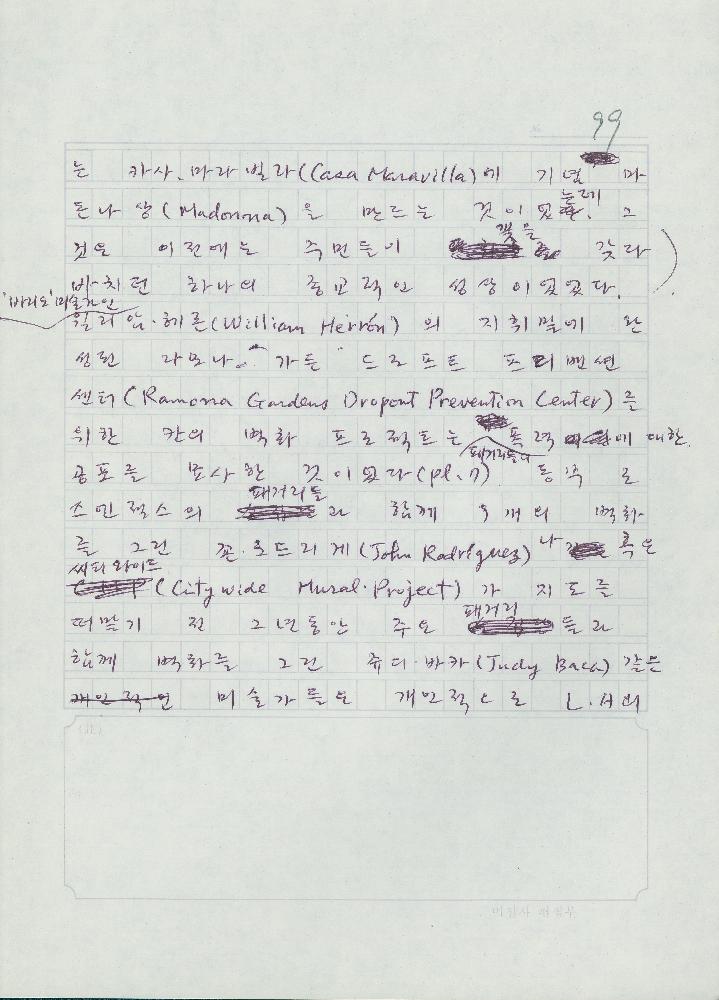 99
는 카사.마라빌라(Casa Maravilla)에 기념 마
돈나 상(Madonna)을 만드는 것이었는데! 그
것은 이전에는 주민들이 꽃을 갖다
바치던 하나의 종교적인 성상이었었다.
'바리오'미술가인
윌리암.헤론(William Herrón)의 지휘밑에 완
성된 라모나. 가든 드로프트 프리벤션
센터(Ramona Gardens Dropout Prevention Center)를
위한 칸의 벽화 프로젝트는 패거리들의 폭력에 대한
공포를 묘사한 것이었다(pl.7) 동쪽 로
스엔젤스의 패거리들과 함께 여러개의 벽화
를 그린 죤.로드리게(John Rodríguez)나 혹은
씨티와이드(Citywide Mural Project)가 지도를
떠맡기 전 2년동안 주요 패거리들과
함께 벽화를 그린 쥬디.바카(Judy Baca) 같은
개인적인 미술가들은 개인적으로 L.A의
(비)
미진사 편집부